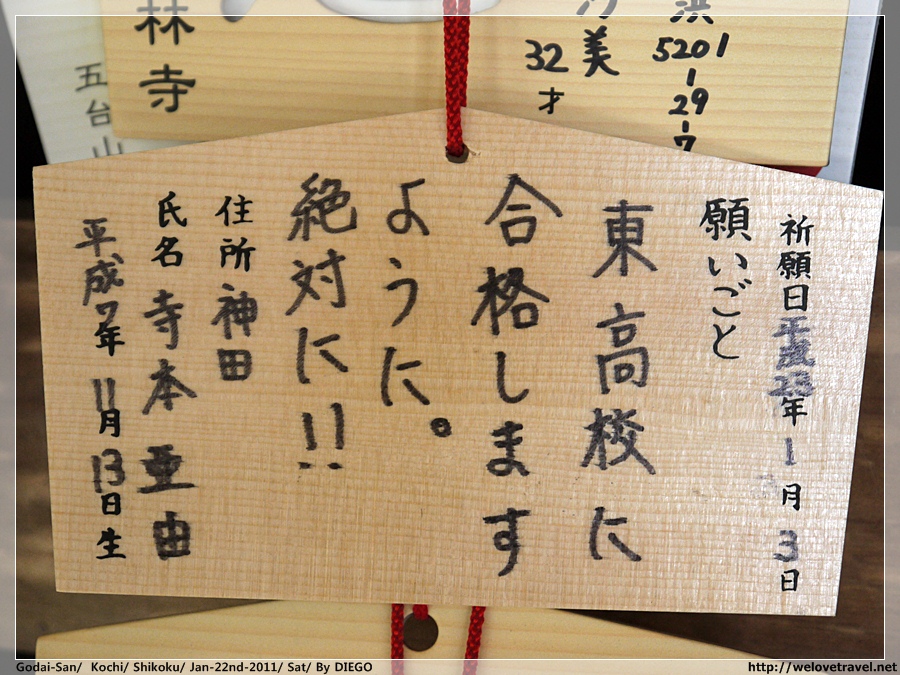 祈願日平成23年1月3日
願いごと
東高校に
合格します
ように。
絶対に!!
住所 神田
氏名 寺本 亜由
平成7年11月13日生
美
32才
5201-29-7
林寺
五台山
Godai-San/ Kochi/ Shikoku/ Jan-22nd-2011/ Sat/ By DIEGO
http://welovetravel.net